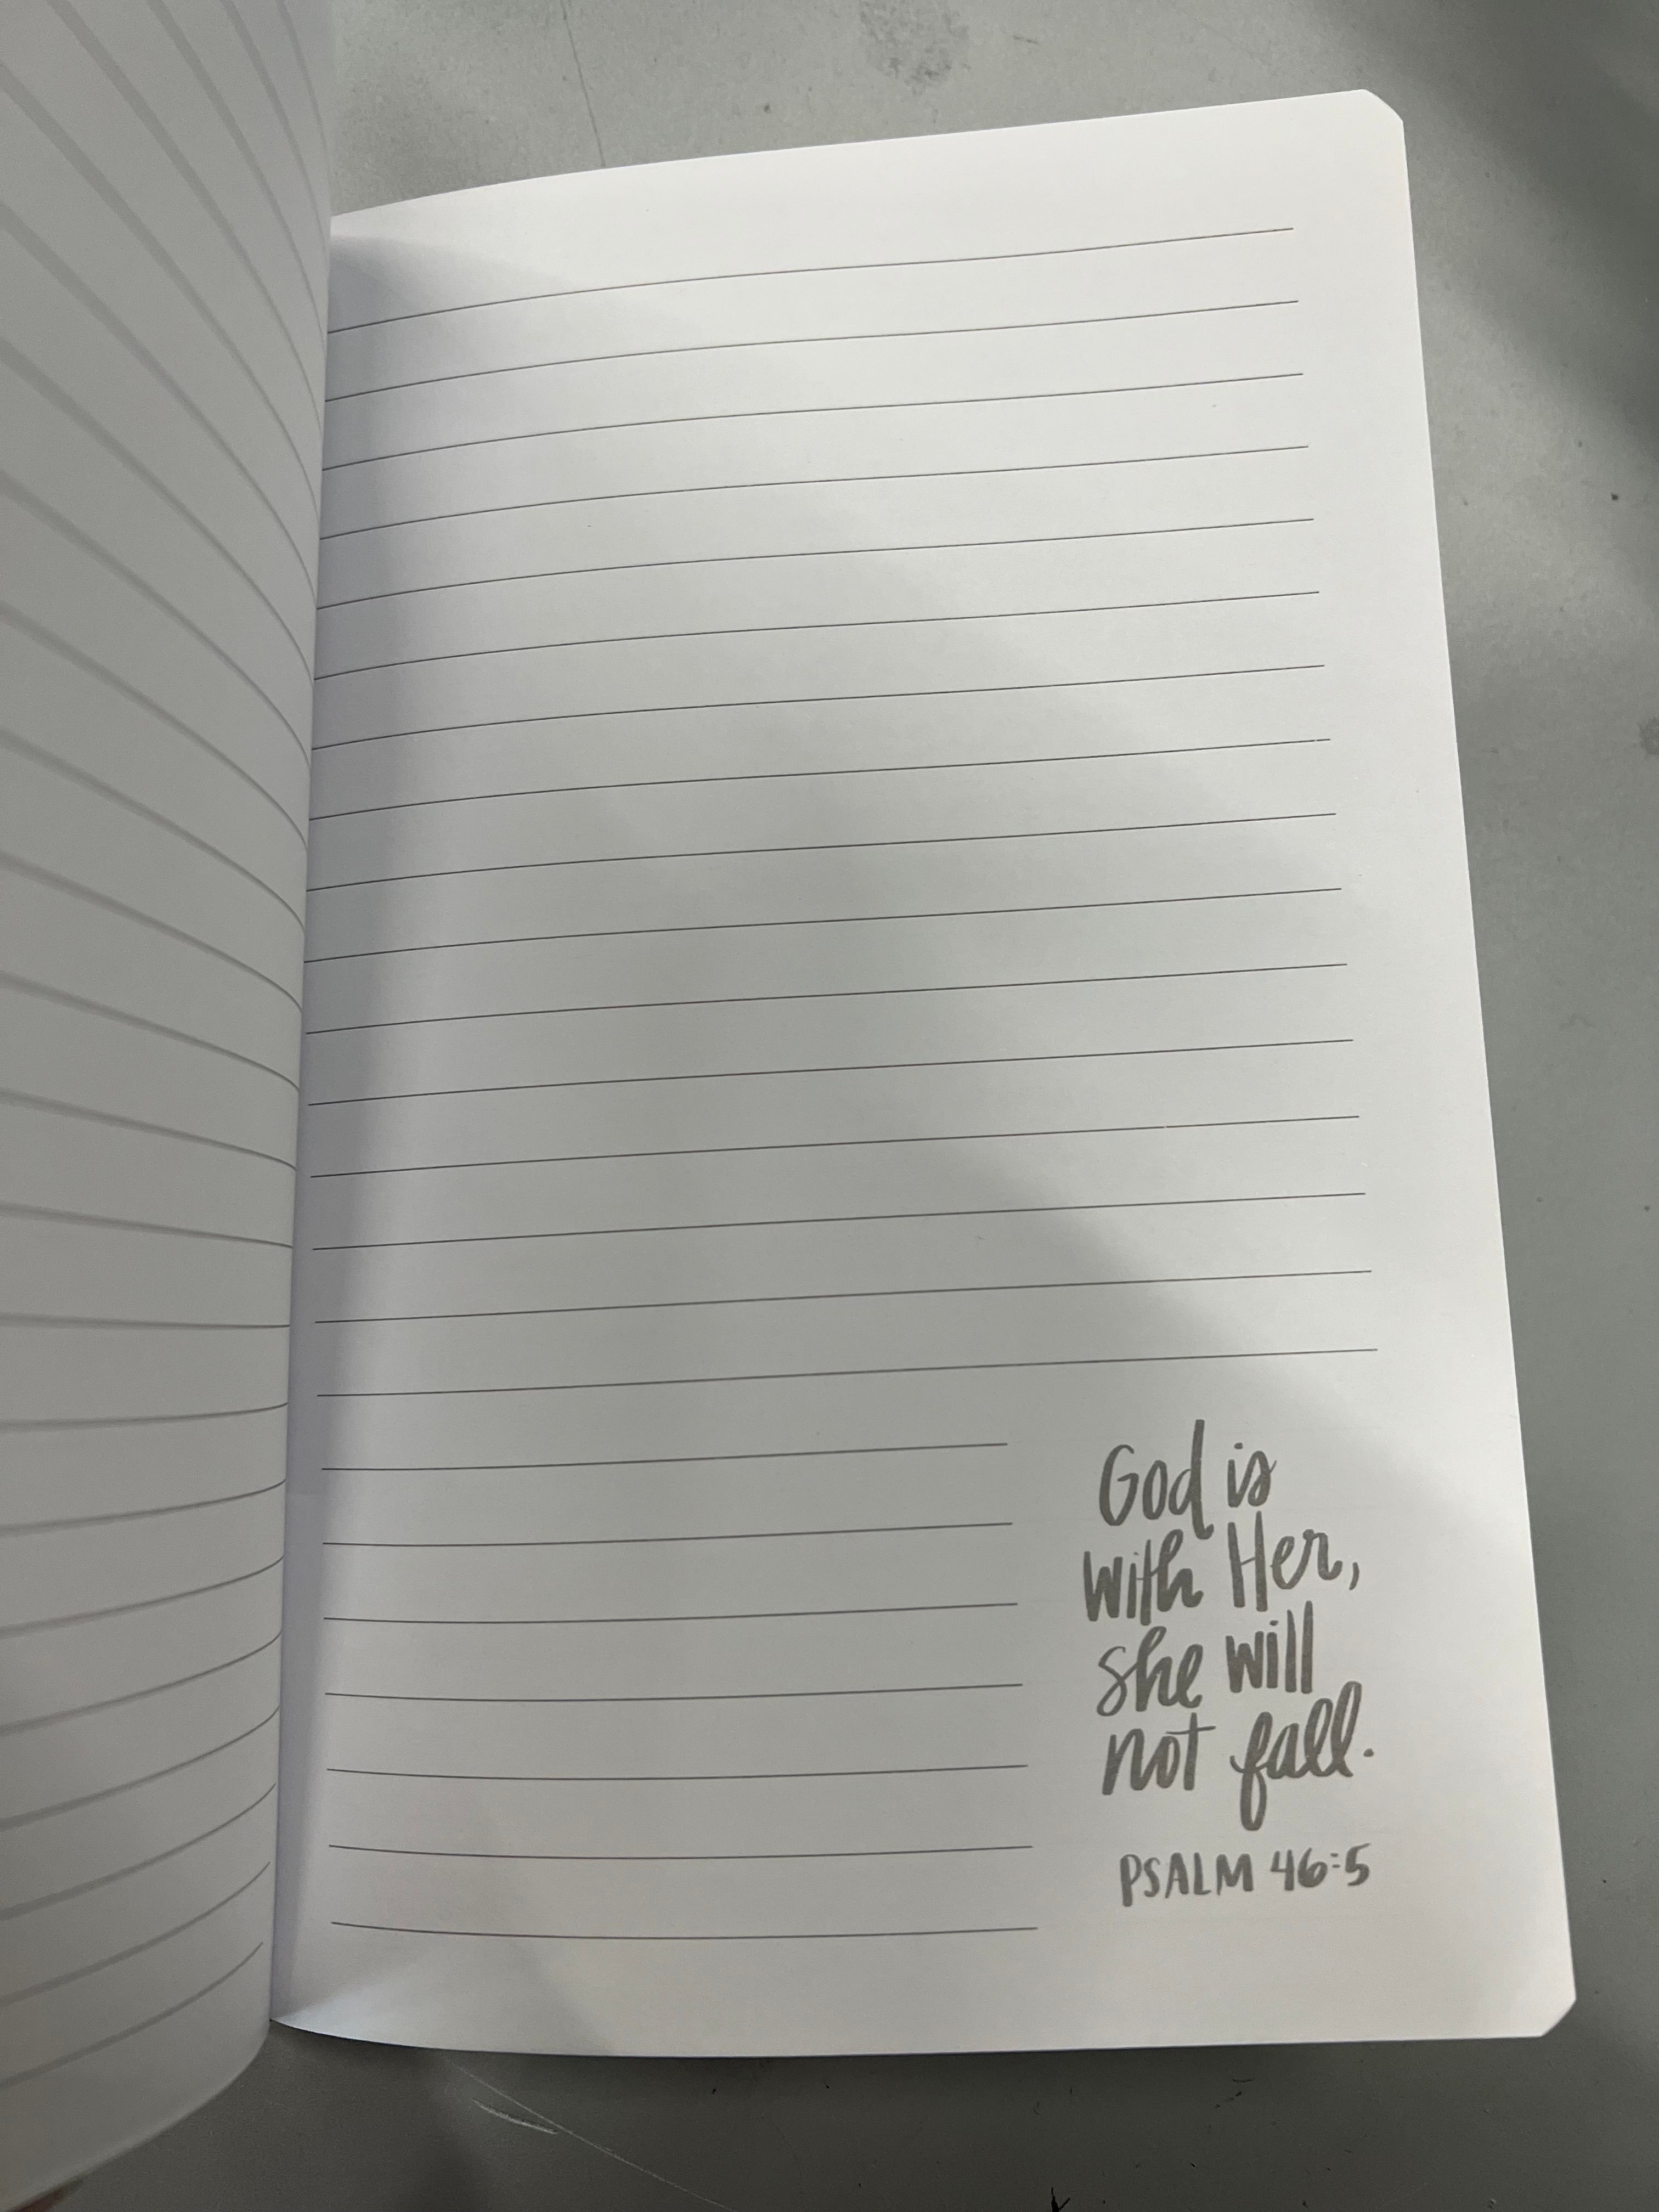 God is
with Her,
she will
not fall.
PSALM 46:5